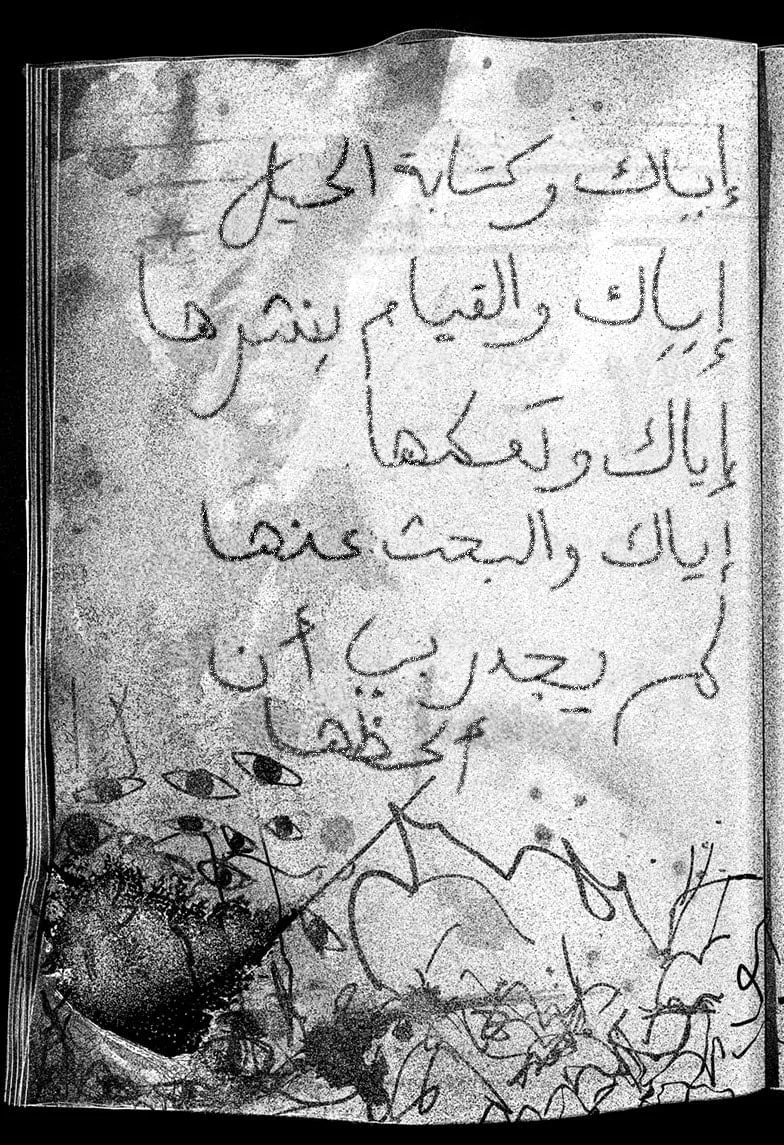 إياك وكتابة الحيل
إياك والقيام بنشرها
إياك وتعكمها
إياك والبحث عنها
لم يجدر بي أن
ألحظها